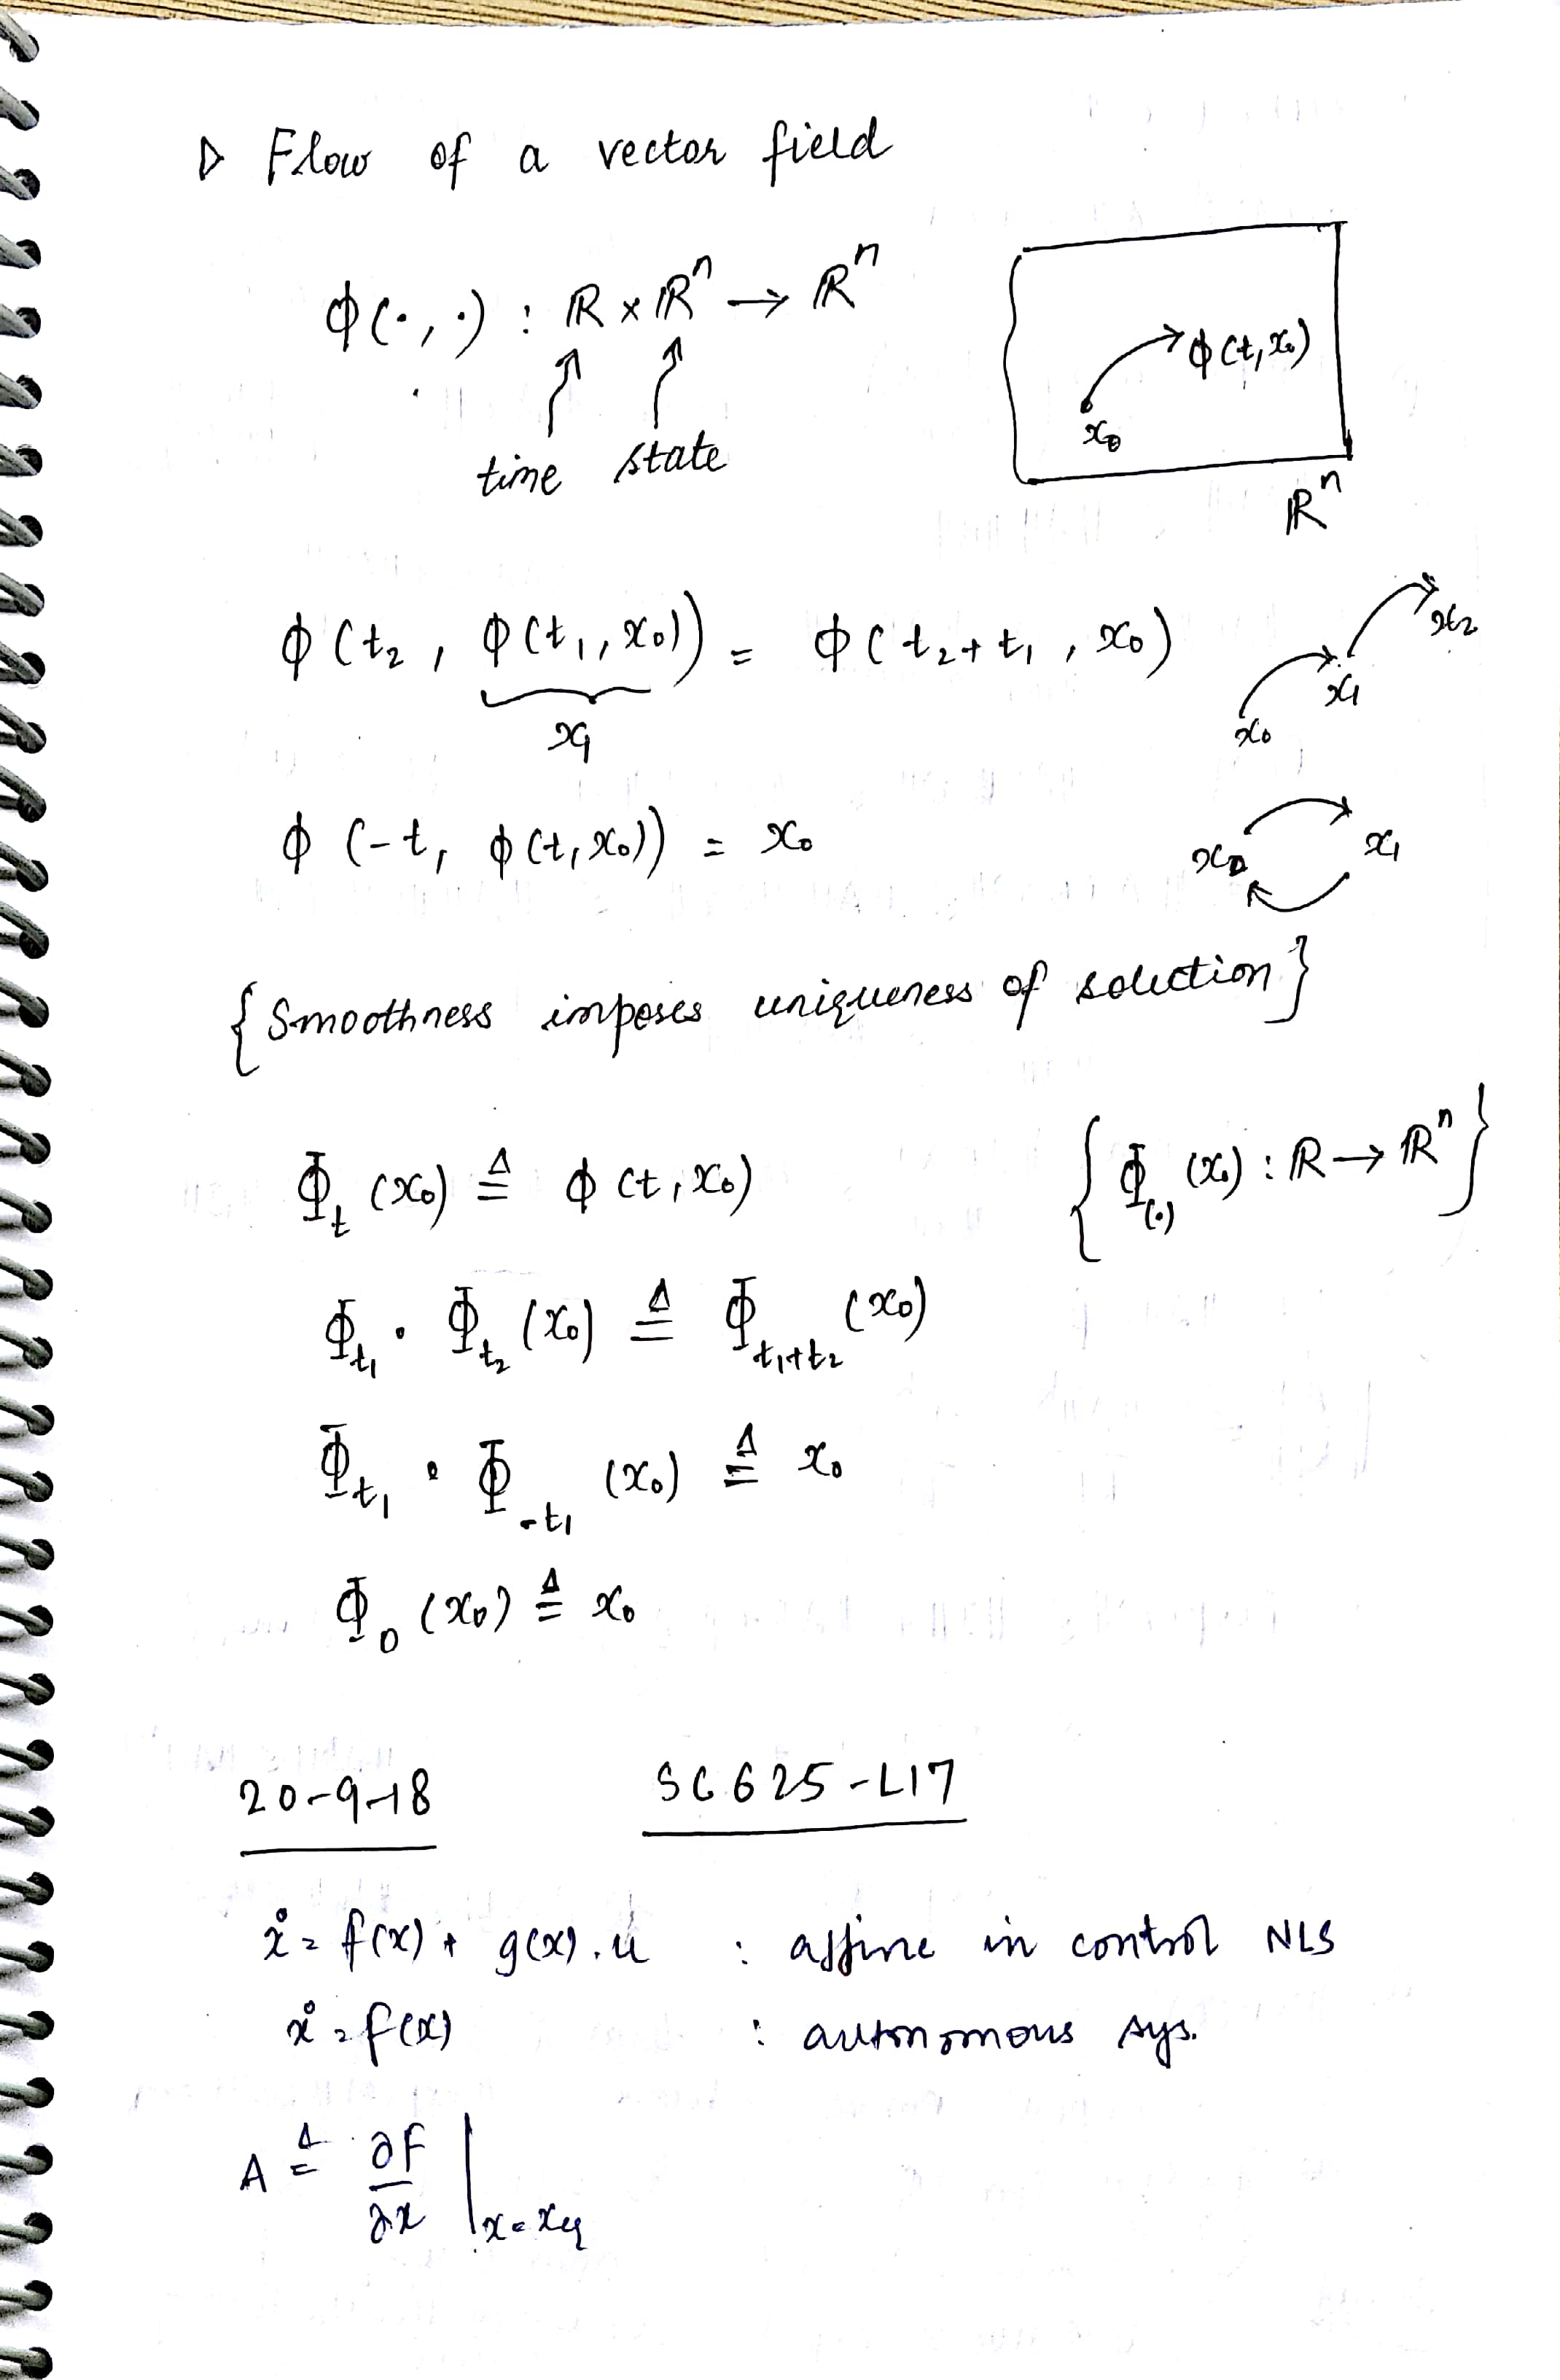 ▷ Flow of a vector field
ϕ(·,·) : ℝ × ℝⁿ → ℝⁿ
time state
ϕ(t, x₀)
x₀
ℝⁿ
ϕ(t₂, ϕ(t₁, x₀)) = ϕ(t₂+t₁, x₀)
x₁
x₀ x₁ x₂
ϕ(-t, ϕ(t, x₀)) = x₀
x₀ x₁
{Smoothness imposes uniqueness of solution}
Φ_t (x₀) ≜ ϕ(t, x₀) {Φ_(·) (x₀) : ℝ → ℝⁿ}
Φ_t₁ ∘ Φ_t₂ (x₀) ≜ Φ_t₁+t₂ (x₀)
Φ_t₁ ∘ Φ_-t₁ (x₀) ≜ x₀
Φ₀ (x₀) ≜ x₀
20-9-18 SC625-L17
ẋ = f(x) + g(x).u : affine in control NLS
ẋ = f(x) : autonomous sys.
A ≜ ∂F/∂x |x=xeq